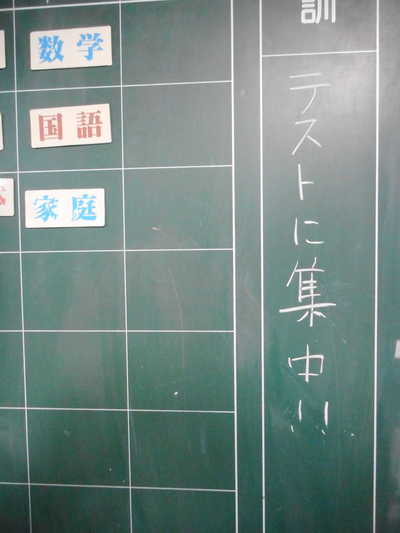 訓
テストに集中!!
数学
国語
家庭